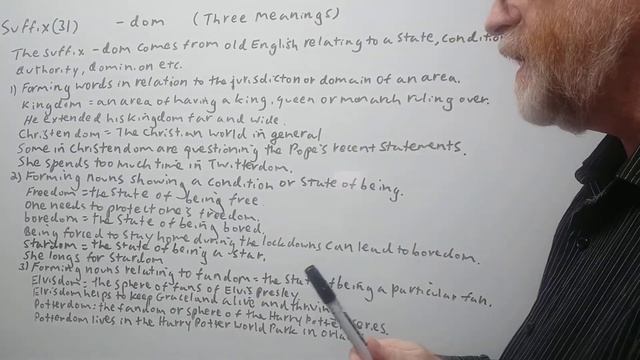 Suffix(31) -dom (Three Meanings)
The suffix -dom comes from old English relating to a state, condition
authority, dominion etc.
1) Forming words in relation to the jurisdiction or domain of an area.
Kingdom = an area of having a king, queen or monarch ruling over.
He extended his kingdom far and wide.
Christendom = The Christian world in general
Some in Christendom are questioning the Pope's recent statements.
She spends too much time in Twitterdom.
2) Forming nouns showing a condition or state of being.
Freedom = the state of being free
One needs to protect one's freedom.
boredom = the state of being bored.
Being forced to stay home during the lockdowns can lead to boredom.
Stardom = the state of being a star.
She longs for stardom
3) Forming nouns relating to fandom = the state of being a particular fan.
Elvisdom = the sphere of fans of Elvis Presley
Elvisdom helps to keep Graceland alive and thriving
Potterdom: the fandom or sphere of the Harry Potter series.
Potterdom lives in the Harry Potter World Park in